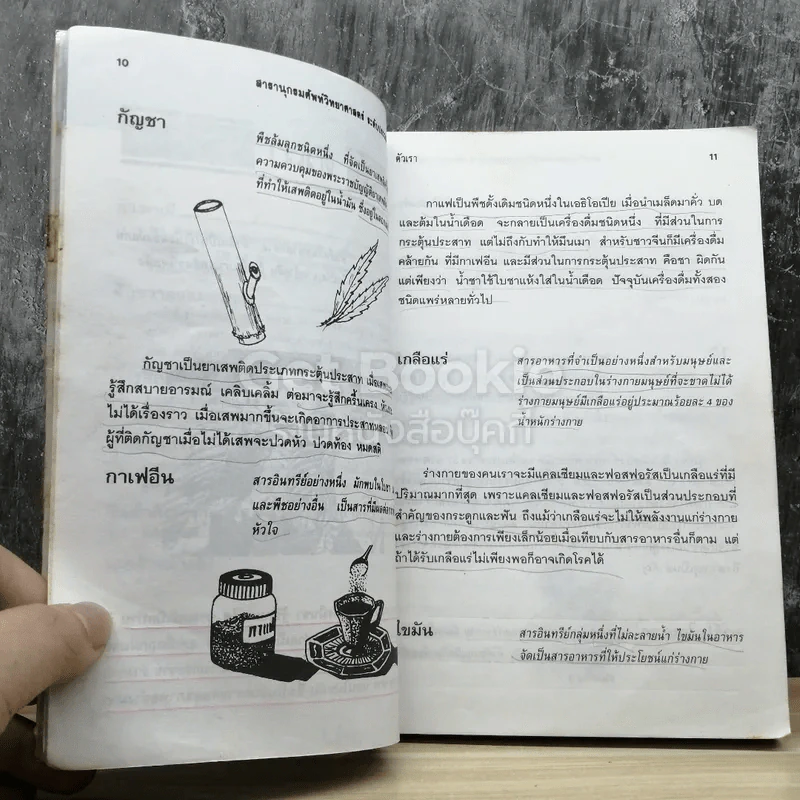 10
สารานุกรมศัพท์วิทยาศาสตร์
กัญชา
พืชล้มลุกชนิดหนึ่ง ที่จัดเป็นยาเสพติด
ความควบคุมของพระราชบัญญัติยาเสพติด
ที่ทำให้เสพติดอยู่ในน้ำมัน ซึ่งอยู่ใน
กัญชาเป็นยาเสพติดประเภทกระตุ้นประสาท เมื่อเสพ
รู้สึกสบายอารมณ์ เคลิบเคลิ้ม ต่อมาจะรู้สึกครื้นเครง
ไม่ได้เรื่องราว เมื่อเสพมากขึ้นจะเกิดอาการประสาทหลอน
ผู้ที่ติดกัญชาเมื่อไม่ได้เสพจะปวดหัว ปวดท้อง หมดสติ
กาเฟอีน
สารอินทรีย์อย่างหนึ่ง มักพบในใบชา
และพืชอย่างอื่น เป็นสารที่มีผลต่อ
หัวใจ
กาแฟ
ตัวเรา
11
กาแฟเป็นพืชดั้งเดิมชนิดหนึ่งในเอธิโอเปีย เมื่อนำเมล็ดมาคั่ว บด
และต้มในน้ำเดือด จะกลายเป็นเครื่องดื่มชนิดหนึ่ง ที่มีส่วนในการ
กระตุ้นประสาท แต่ไม่ถึงกับทำให้มึนเมา สำหรับชาวจีนก็มีเครื่องดื่ม
คล้ายกัน ที่มีกาเฟอีน และมีส่วนในการกระตุ้นประสาท คือชา ผิดกัน
แต่เพียงว่า น้ำชาใช้ใบชาแห้งใส่ในน้ำเดือด ปัจจุบันเครื่องดื่มทั้งสอง
ชนิดแพร่หลายทั่วไป
เกลือแร่
สารอาหารที่จำเป็นอย่างหนึ่งสำหรับมนุษย์และ
เป็นส่วนประกอบในร่างกายมนุษย์ที่จะขาดไม่ได้
ร่างกายมนุษย์มีเกลือแร่อยู่ประมาณร้อยละ 4 ของ
น้ำหนักร่างกาย
ร่างกายของคนเราจะมีแคลเซียมและฟอสฟอรัสเป็นเกลือแร่ที่มี
ปริมาณมากที่สุด เพราะแคลเซียมและฟอสฟอรัสเป็นส่วนประกอบที่
สำคัญของกระดูกและฟัน ถึงแม้ว่าเกลือแร่จะไม่ให้พลังงานแก่ร่างกาย
และร่างกายต้องการเพียงเล็กน้อยเมื่อเทียบกับสารอาหารอื่นก็ตาม แต่
ถ้าได้รับเกลือแร่ไม่เพียงพอก็อาจเกิดโรคได้
ไขมัน
สารอินทรีย์กลุ่มหนึ่งที่ไม่ละลายน้ำ ไขมันในอาหาร
จัดเป็นสารอาหารที่ให้ประโยชน์แก่ร่างกาย
Get Bookie
ร้านหนังสือบุ๊คกี้